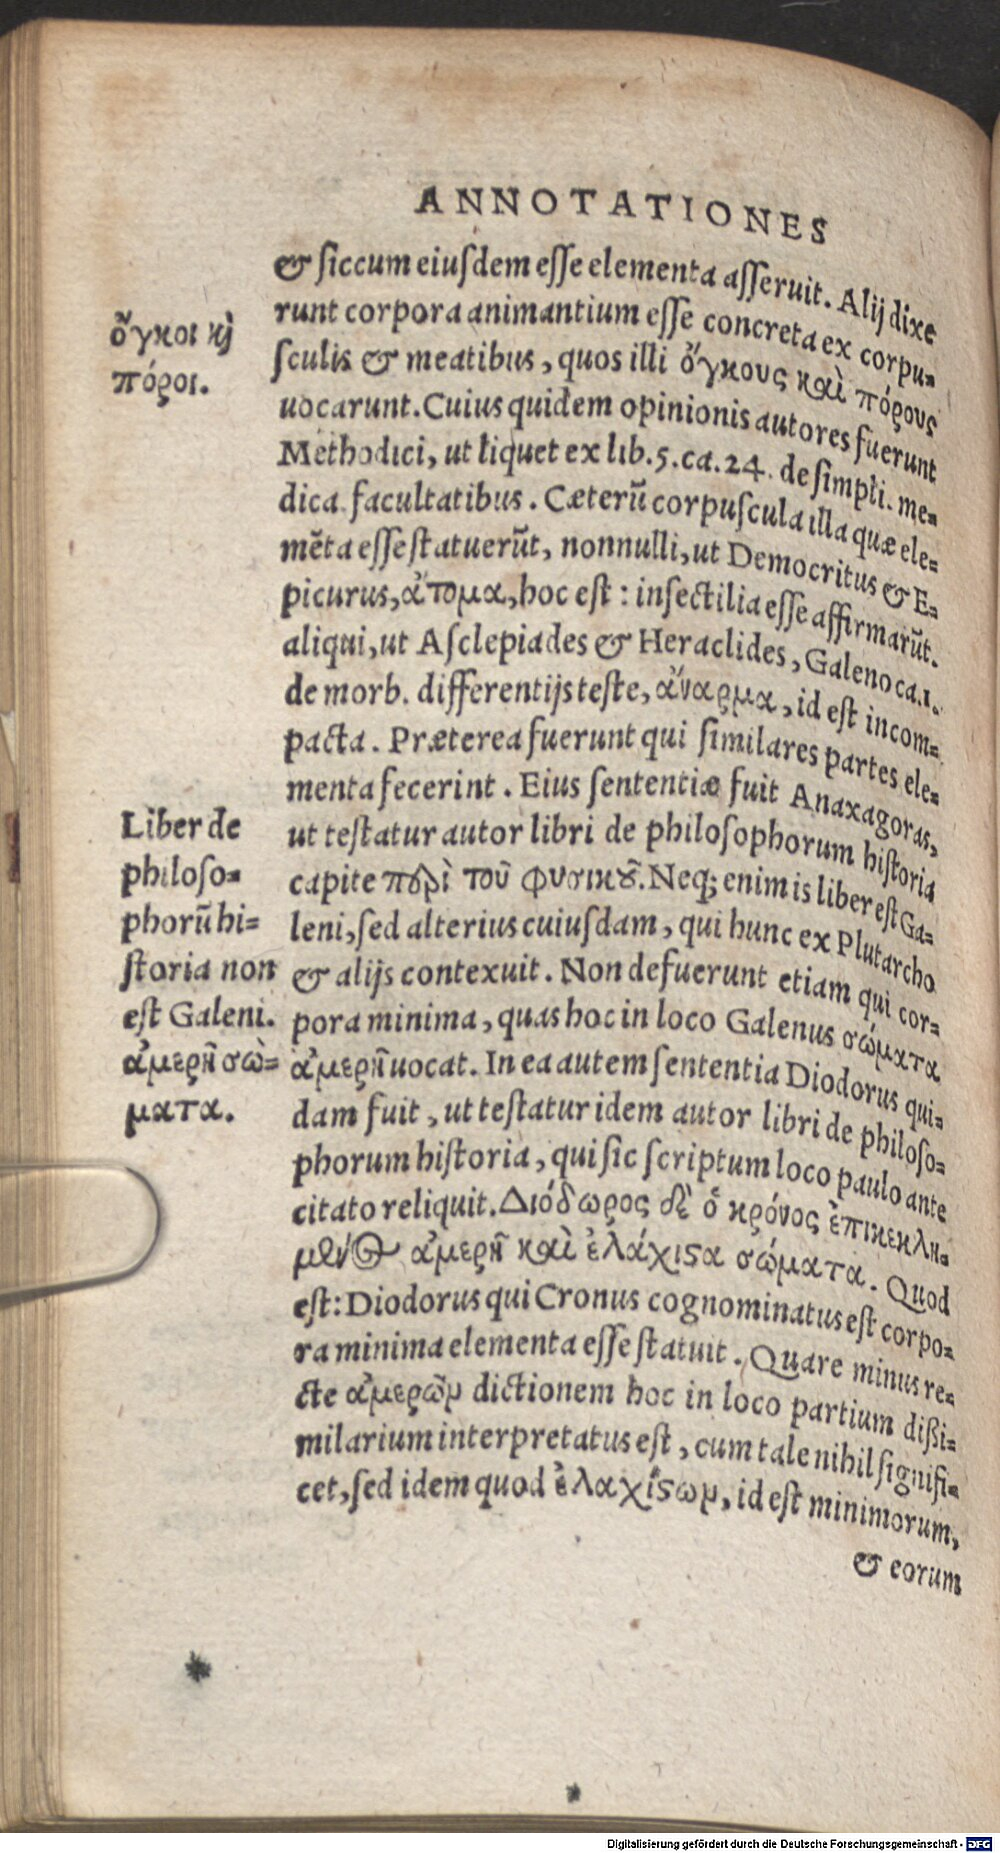 ANNOTATIONES
& siccum eiusdem esse elementa asseruit. Alij dixe
runt corpora animantium esse concreta ex corpu-
sculis & meatibus, quos illi ὄγκους καὶ πόρους
uocarunt. Cuius quidem opinionis autores fuerunt
Methodici, ut liquet ex lib. 5. ca. 24. de simpli. me-
dica facultatibus. Cæterũ corpuscula illa quæ ele-
mẽta esse statuerũt, nonnulli, ut Democritus & E-
picurus, ἄτομα, hoc est: insectilia esse affirmarũt.
aliqui, ut Asclepiades & Heraclides, Galeno ca. 1.
de morb. differentijs teste, ἄναρμα, id est incom-
pacta. Præterea fuerunt qui similares partes ele-
menta fecerint. Eius sententiæ fuit Anaxagoras,
ut testatur autor libri de philosophorum historia
capite περὶ τοῦ φυσικοῦ. Neq; enim is liber est Ga-
leni, sed alterius cuiusdam, qui hunc ex Plutarcho
& alijs contexuit. Non defuerunt etiam qui cor-
pora minima, quas hoc in loco Galenus σώματα
ἀμερῆ uocat. In ea autem sententia Diodorus qui-
dam fuit, ut testatur idem autor libri de philoso-
phorum historia, qui sic scriptum loco paulo ante
citato reliquit. Διόδωρος δὲ ὁ κρόνος ἐπικεκλη-
μένος ἀμερῆ καὶ ἐλάχιστα σώματα. Quod
est: Diodorus qui Cronus cognominatus est corpo-
ra minima elementa esse statuit. Quare minus re-
cte ἀμερῶν dictionem hoc in loco partium dißi-
milarium interpretatus est, cum tale nihil signifi-
cet, sed idem quod ἐλαχίστων, id est minimorum,
& eorum
ὄγκοι καὶ
πόροι.
Liber de
philoso-
phorũ hi-
storia non
est Galeni.
ἀμερῆ σώ-
ματα.
Digitalisierung gefördert durch die Deutsche Forschungsgemeinschaft - DFG